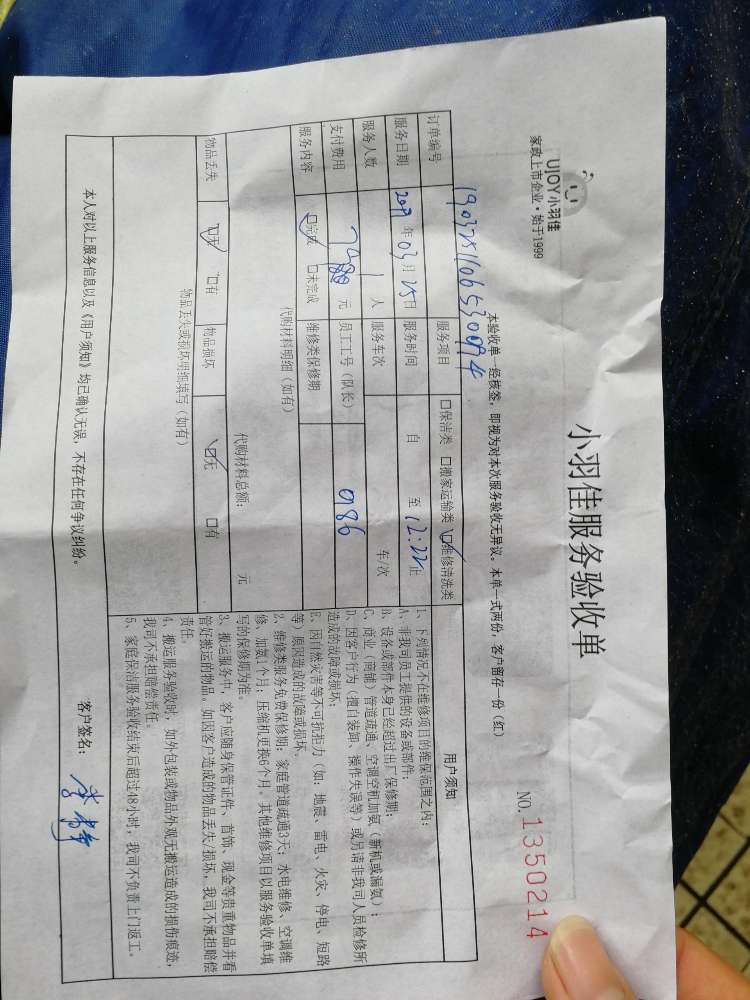 UJOY小羽佳
家政上市企业·始于1999
小羽佳服务验收单
NO. 1350214
本验收单一经核签,即视为对本次服务验收无异议。本单一式两份,客户留存一份(红)
订单编号
服务项目 口保洁类 口搬家运输类 口维修清洗类
服务日期 2019 年 03 月 25 日 服务时间 自 至 12:22 止
服务人数 1 人 服务车次 车/次
支付费用 元 员工工号(队长) 0186
服务内容 口完成 口未完成 维修类保修期
代购材料明细(如有)
代购材料总额: 元
物品丢失 口无 口有 物品损坏 口无 口有
物品丢失或损坏明细填写(如有)
用户须知
1、下列情况不在维修项目的维保范围之内:
A、非我司员工提供的设备或部件;
B、设备或部件本身已经超过出厂保修期;
C、商业(商铺)管道疏通、空调空机加氨(新机或漏氨);
D、因客户行为(擅自装卸、操作失误等)或另请非我司人员检修所
造成的故障或损坏;
E、因自然灾害等不可抗拒力(如:地震、雷电、火灾、停电、短路
等)原因造成的故障或损坏。
2、维修类服务免费保修期:家庭管道疏通3天;水电维修、空调维
修、加氨1个月;压缩机更换6个月。其他维修项目以服务验收单填
写的保修期为准。
3、搬运服务中,客户应随身保管证件、首饰、现金等贵重物品并看
管好搬运的物品。如因客户造成的物品丢失/损坏,我司不承担赔偿
责任。
4、搬运服务验收时,如外包装或物品外观无搬运造成的损伤痕迹,
我司不承担赔偿责任。
5、家庭保洁服务验收结束后超过48小时,我司不负责上门返工。
本人对以上服务信息以及《用户须知》均已确认无误,不存在任何争议纠纷。
客户签名: